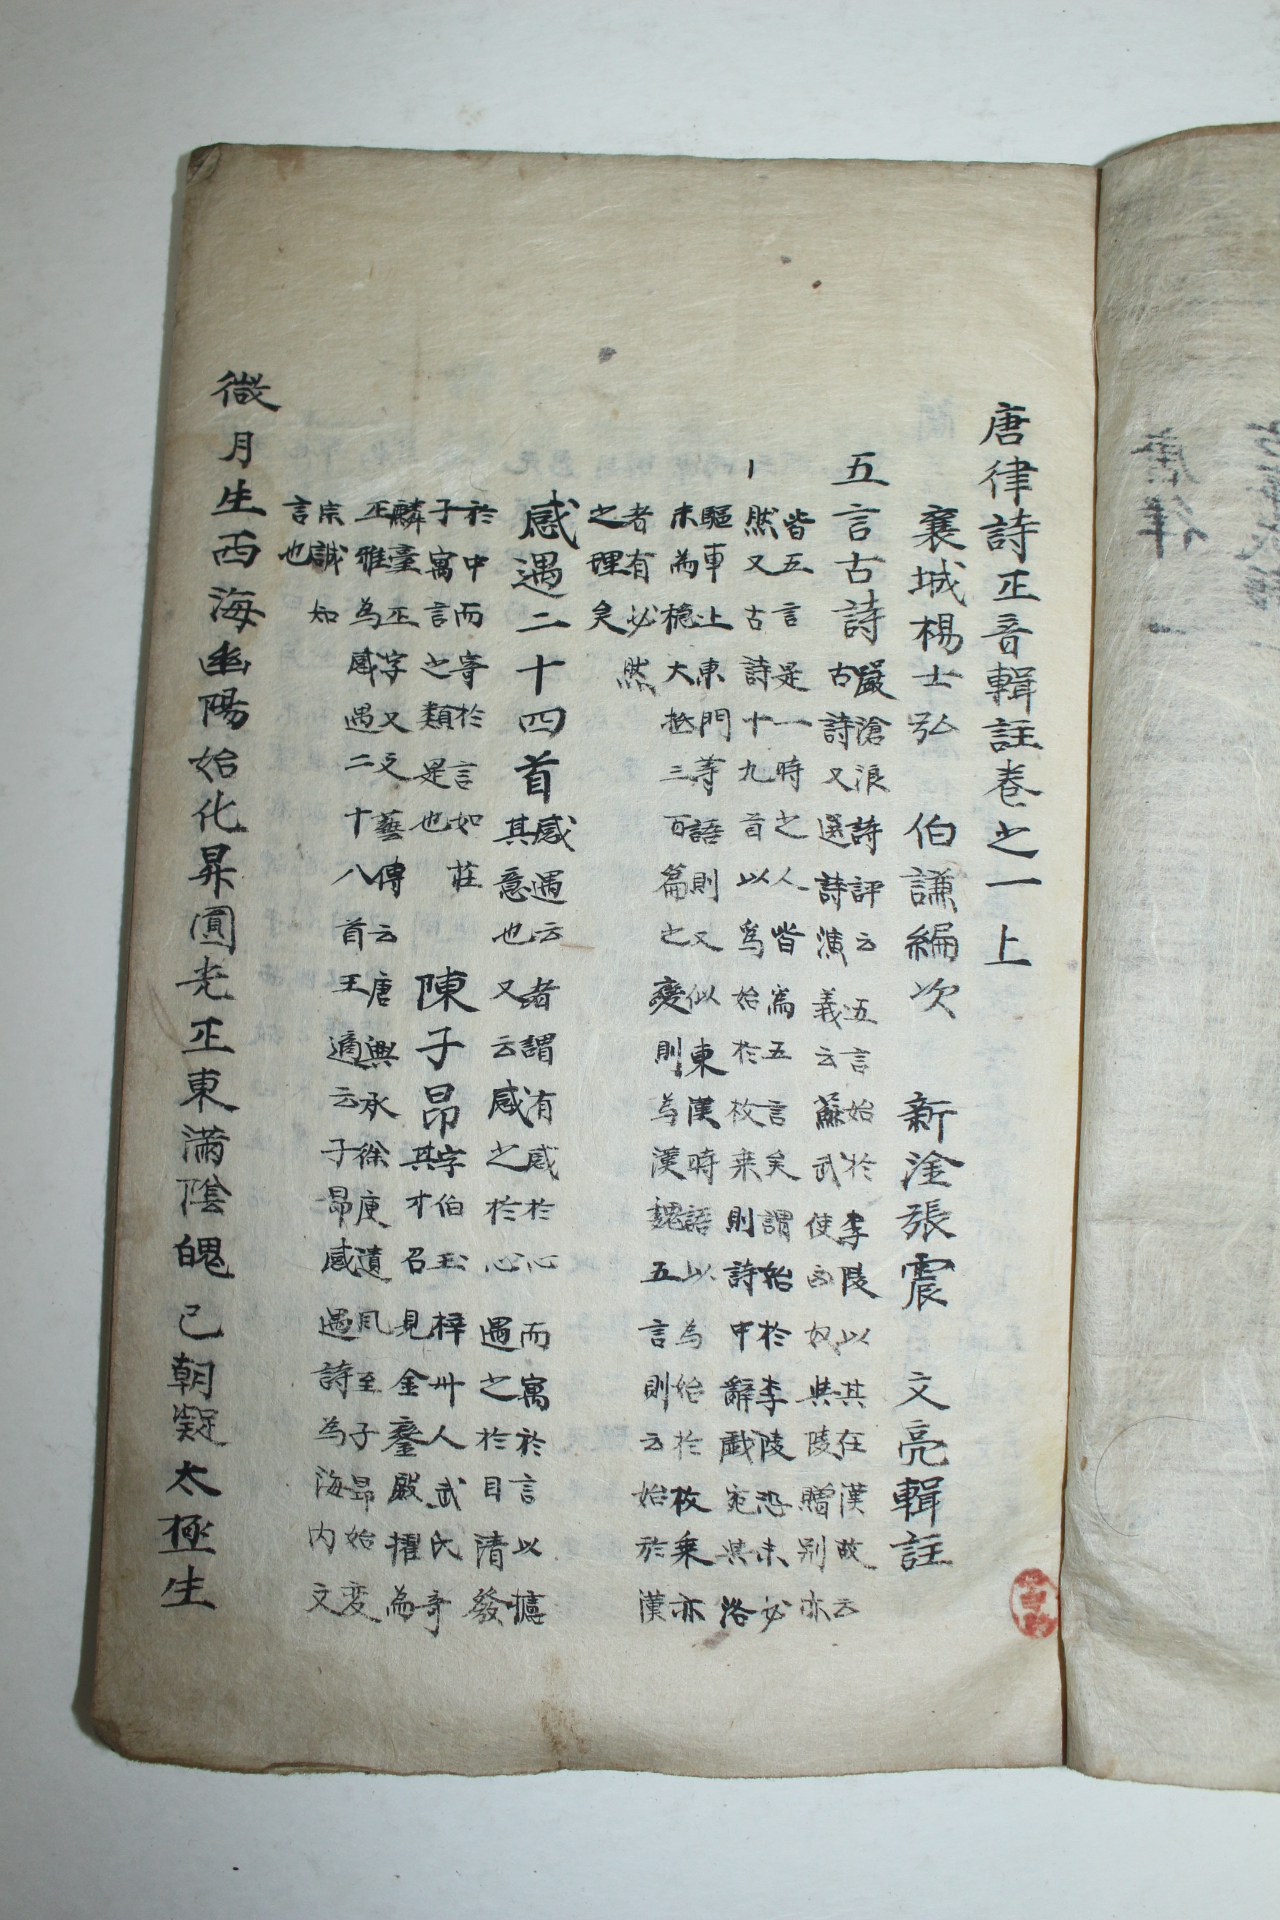 唐律詩正音輯註卷之一上
襄城楊士弘 伯謙編次 新淦張震 文亮輯註
五言古詩 嚴滄浪詩評云五言始於李陵以其在漢故云
古詩又選詩演義云蘇武使匈奴與陵贈別亦
皆五言是一時之人皆為五言矣謂始於李陵恐未必
然又古詩十九首以為始於枚乗則詩中辭戯宛其洛
驅車上東門等語則又似東漢時語以為始於枚乗亦
未為穏大抵三百篇之變則為漢魏五言則云始於漢
者有必然
之理矣
感遇二十四首 感遇云者謂有感於心而寓於言以攄
其意也又云感之於心遇之於目清發
於中而寄於言如莊
子寓言之類是也
陳子昂 字伯玉梓州人武氏奇
其才召見金鑾殿擢為
麟臺正字又文藝傳云唐興承徐庾遺風至子昂始変
正雅為感遇二十八首王適云子昂感遇詩為海内文
宗誠知
言也
微月生西海幽陽始化昇圓光正東滿陰魄已朝凝太極生
唐律一